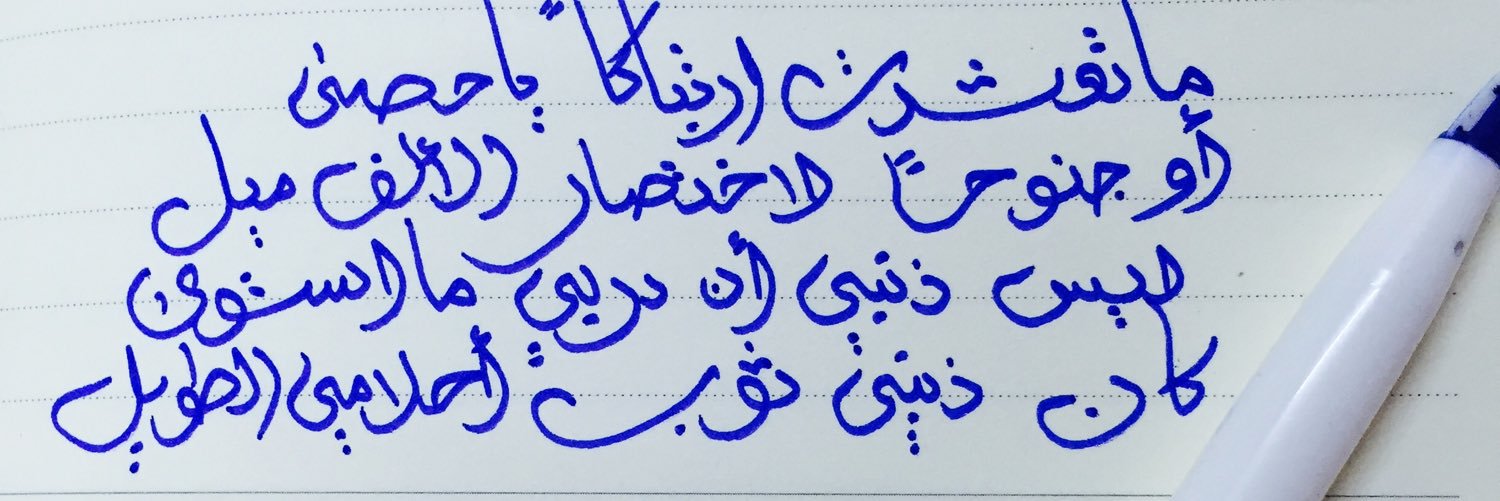 ما تعثرت ارتباكاً يا حصى
أو جنوحاً لاختصار الألف ميل
ليس ذنبي أن دربي ما استوى
كان ذنبي ثوب أحلامي الطويل